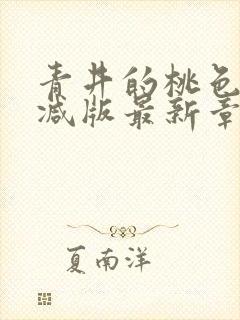 青井的桃色
减版最新章
夏南洋